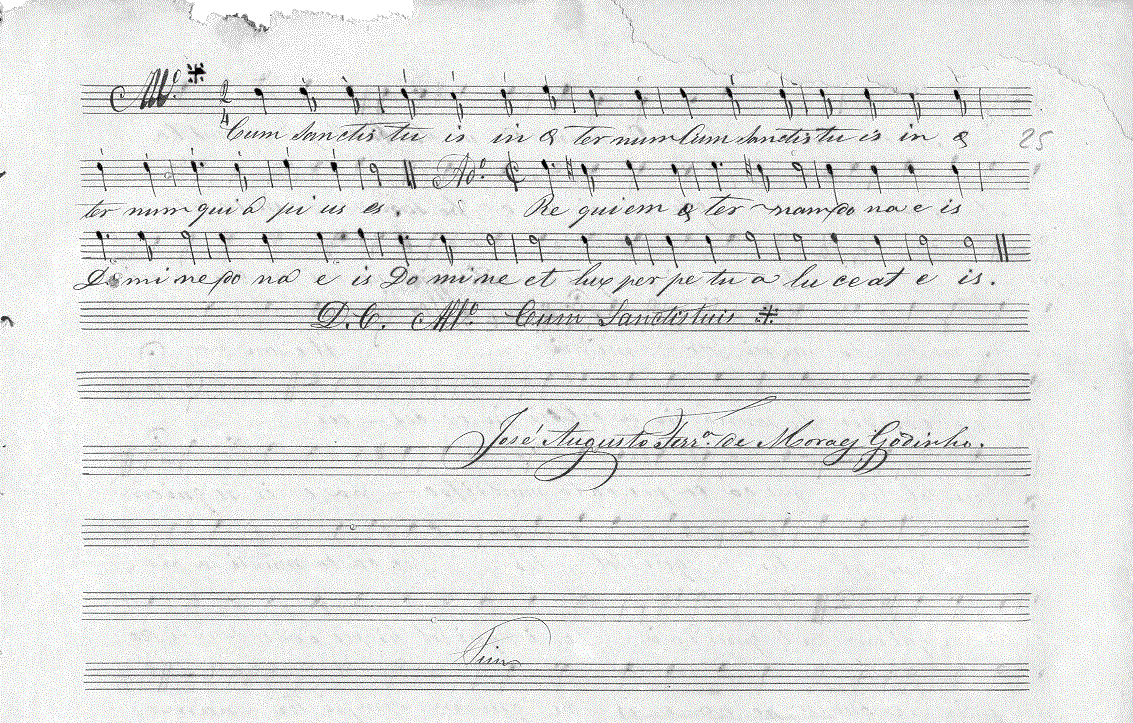 All.º
Cum Sanctis tu is in æ ter num Cum Sanctis tu is in æ 25
Ad.º
ter num qui a pi us es. Re qui em æ ter nam do na e is
Do mi ne do na e is Do mi ne et lux per pe tu a lu ce at e is.
D.C. All.º Cum Sanctis tuis
José Augusto Ferr.ª de Moraes Godinho.
Fim